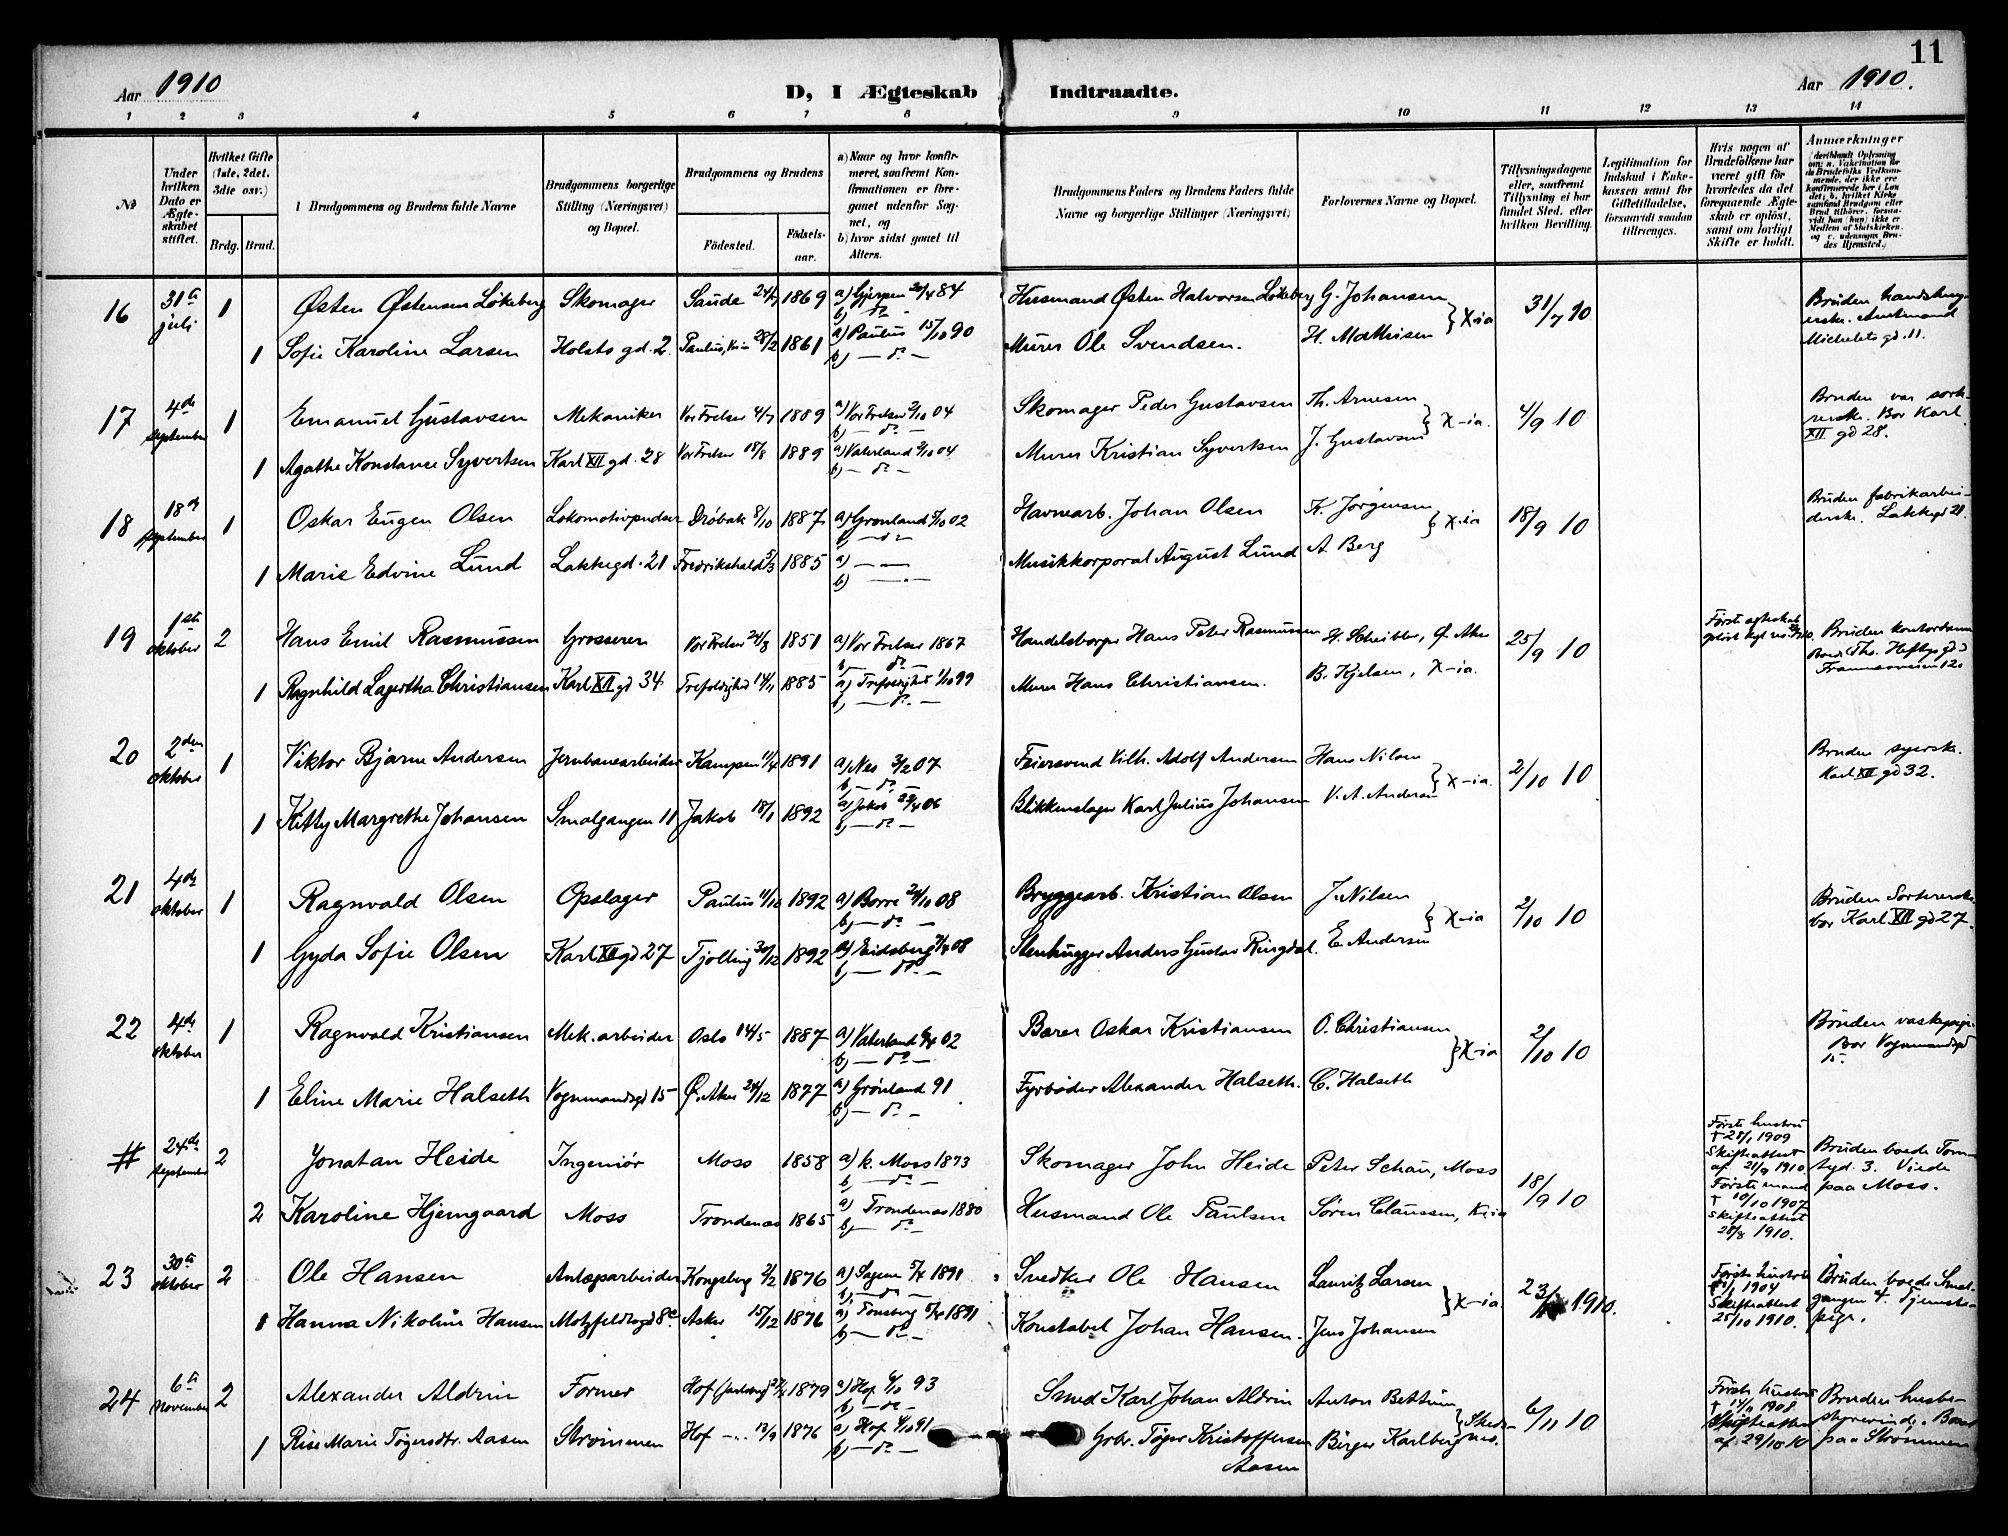 11
Aar 1910
D, I Ægteskab Indtraadte.
Aar 1910.
1 2 3 4 5 6 7 8 9 10 11 12 13 14
No
Under hvilken Dato er Ægteskabet stiftet.
Hvilket Gifte (1ste, 2det, 3die osv.)
Brdg. Brud.
Brudgommens og Brudens fulde Navne
Brudgommens borgerlige Stilling (Næringsvei) og Bopæl.
Brudgommens og Brudens
Fødested.
Fødselsaar.
a) Naar og hvor konfirmeret, saafremt Konfirmationen er foregaaet udenfor Sognet, og
b) hvor sidst gaaet til Alters.
Brudgommens Faders og Brudens Faders fulde Navne og borgerlige Stillinger (Næringsvei)
Forlovernes Navne og Bopæl.
Tillysningsdagene eller, saafremt Tillysning ei har fundet Sted, efter hvilken Bevilling.
Legitimation for Indskud i Enkekassen samt for Giftetilladelse, forsaavidt saadan tiltrænges.
Hvis nogen af Brudefolkene har været gift før hvorledes da det foregaaende Ægteskab er opløst, samt om lovligt Skifte er holdt.
Anmærkninger
16 31te juli 1 Østen Østensen Løkeberg Skomager Saude 24/7 1869 a) Gjerpen 20/4 84 b) do Husmand Østen Halvorsen Løkeberg G. Johansen X-ia 31/7 10 Bruden
1 Sofie Karoline Larsen Holsts gd. 2. Paulus, Kria 28/2 1861 a) Paulus 15/10 90 b) do Murer Ole Svendsen. H. Mathisen Michelets gd. 11.
17 4de september 1 Emanuel Gustavsen Mekaniker Vor Frelser 4/7 1889 a) Vor Frelser 2/10 04 b) do Skomager Peder Gustavsen Th. Arnesen X-ia. 4/9 10 Bruden var Bor Karl XII gd 28.
1 Agathe Konstance Syvertsen Karl XII gd. 28 Vor Frelser 18/8 1889 a) Vaterland 2/10 04 b) do Murer Kristian Syvertsen J. Gustavsen
18 18de september 1 Oskar Eugen Olsen Lokomotivpudser Drøbak 8/10 1887 a) Grønland 5/10 02 b) do Havnearb. Johan Olsen K. Jørgensen X-ia 18/9 10 Bruden fabrikarbeiderske. Lakkegd 21.
1 Marie Edvine Lund Lakkegd. 21 Fredrikshald 5/3 1885 a) b) Musikkorporal August Lund A Berg
19 1ste oktober 2 Hans Emil Rasmussen Grosserer Vor Frelser 24/8 1851 a) Vor Frelser 1867 b) do Handelsborger Hans Peter Rasmussen H. Scheibler, Ø. Aker 25/9 10 Bruden
1 Ragnhild Lagertha Christiansen Karl XII gd 34 Trefoldighed 14/1 1885 a) Trefoldighet 1/10 99 b) do Murer Hans Christiansen. B. Kjelsen, X-ia.
20 2den oktober 1 Viktor Bjarne Andersen Jernbanearbeider Kampen 11/4 1891 a) Nes 3/2 07 b) do Feiersvend Vilh. Adolf Andersen Hans Nilsen X-ia. 2/10 10 Bruden syerske. Karl XII gd 32.
1 Kitty Margrethe Johansen Smalgangen 11 Jakob 18/1 1892 a) Jakob 29/4 06 b) do Blikkenslager Karl Julius Johansen V. A. Andersen
21 4de oktober 1 Ragnvald Olsen Opslager Paulus 11/10 1892 a) Borre 24/10 08 b) do Bryggearb. Kristian Olsen J. Nilsen X-ia 2/10 10 Bruden Sortererske bor Karl XII gd 27.
1 Gyda Sofie Olsen Karl XII gd 27 Tjølling 30/12 1892 a) Eidsberg 08 b) do Stenhugger Anders Gustav Ringdal. E. Andersen
22 4de oktober 1 Ragnvald Kristiansen Mek. arbeider Oslo 14/5 1887 a) Vaterland 02 b) do Bærer Oskar Kristiansen O. Christiansen X-ia 2/10 10 Bruden vaskepige. Bor Vognmandsgd 15.
1 Eline Marie Halseth Vognmandsgd 15 Ø. Aker 24/12 1877 a) Grønland 91 b) do Fyrbøder Alexander Halseth. C. Halseth
# 24de september 2 Jonatan Heide Ingeniør Moss 1858 a) k. Moss 1873 b) do Skomager John Heide Peter Schau, Moss 18/9 10 Første hustru † 28/1 1909 Skifteattest af 21/9 1910. Bruden boede gd. 3. Viede paa Moss.
2 Karoline Hjemgaard Moss Trondenæs 1865 a) Trondenæs 1880 b) do Husmand Ole Paulsen Søren Claussen, Kria Første mand † 10/10 1907 Skifteattest 28/8 1910.
23 30te oktober 2 Ole Hansen Anlægsarbeider Kongsberg 2/2 1876 a) Sagene 1891 b) do Snedker Ole Hansen Lauritz Larsen X-ia. 23/10 1910. Første hustru 1904 Skifteattest 25/10 1910. Bruden boede Smalgangen 4. Tjenestepige.
1 Hanna Nikoline Hansen Motzfeldtsgd 8c. Asker 15/12 1876 a) Tønsberg 1891 b) do Konstabel Johan Hansen. Jens Johansen
24 6te november 2 Alexander Aldrin Former Hof (Jarlsberg) 1879 a) Hof 93 b) do Smed Karl Johan Aldrin Anton Bettum 6/11 10 Første hustru 1908 Skifteattest af 29/10 10 Bruden husbestyrerinde. Boede paa Strømmen
1 Rise Marie Tøgersdtr. Aasen Strømmen Hof 13/9 1876 a) Hof 91 b) do Grbr. Tøger Kristoffersen Aasen Birger Karlberg